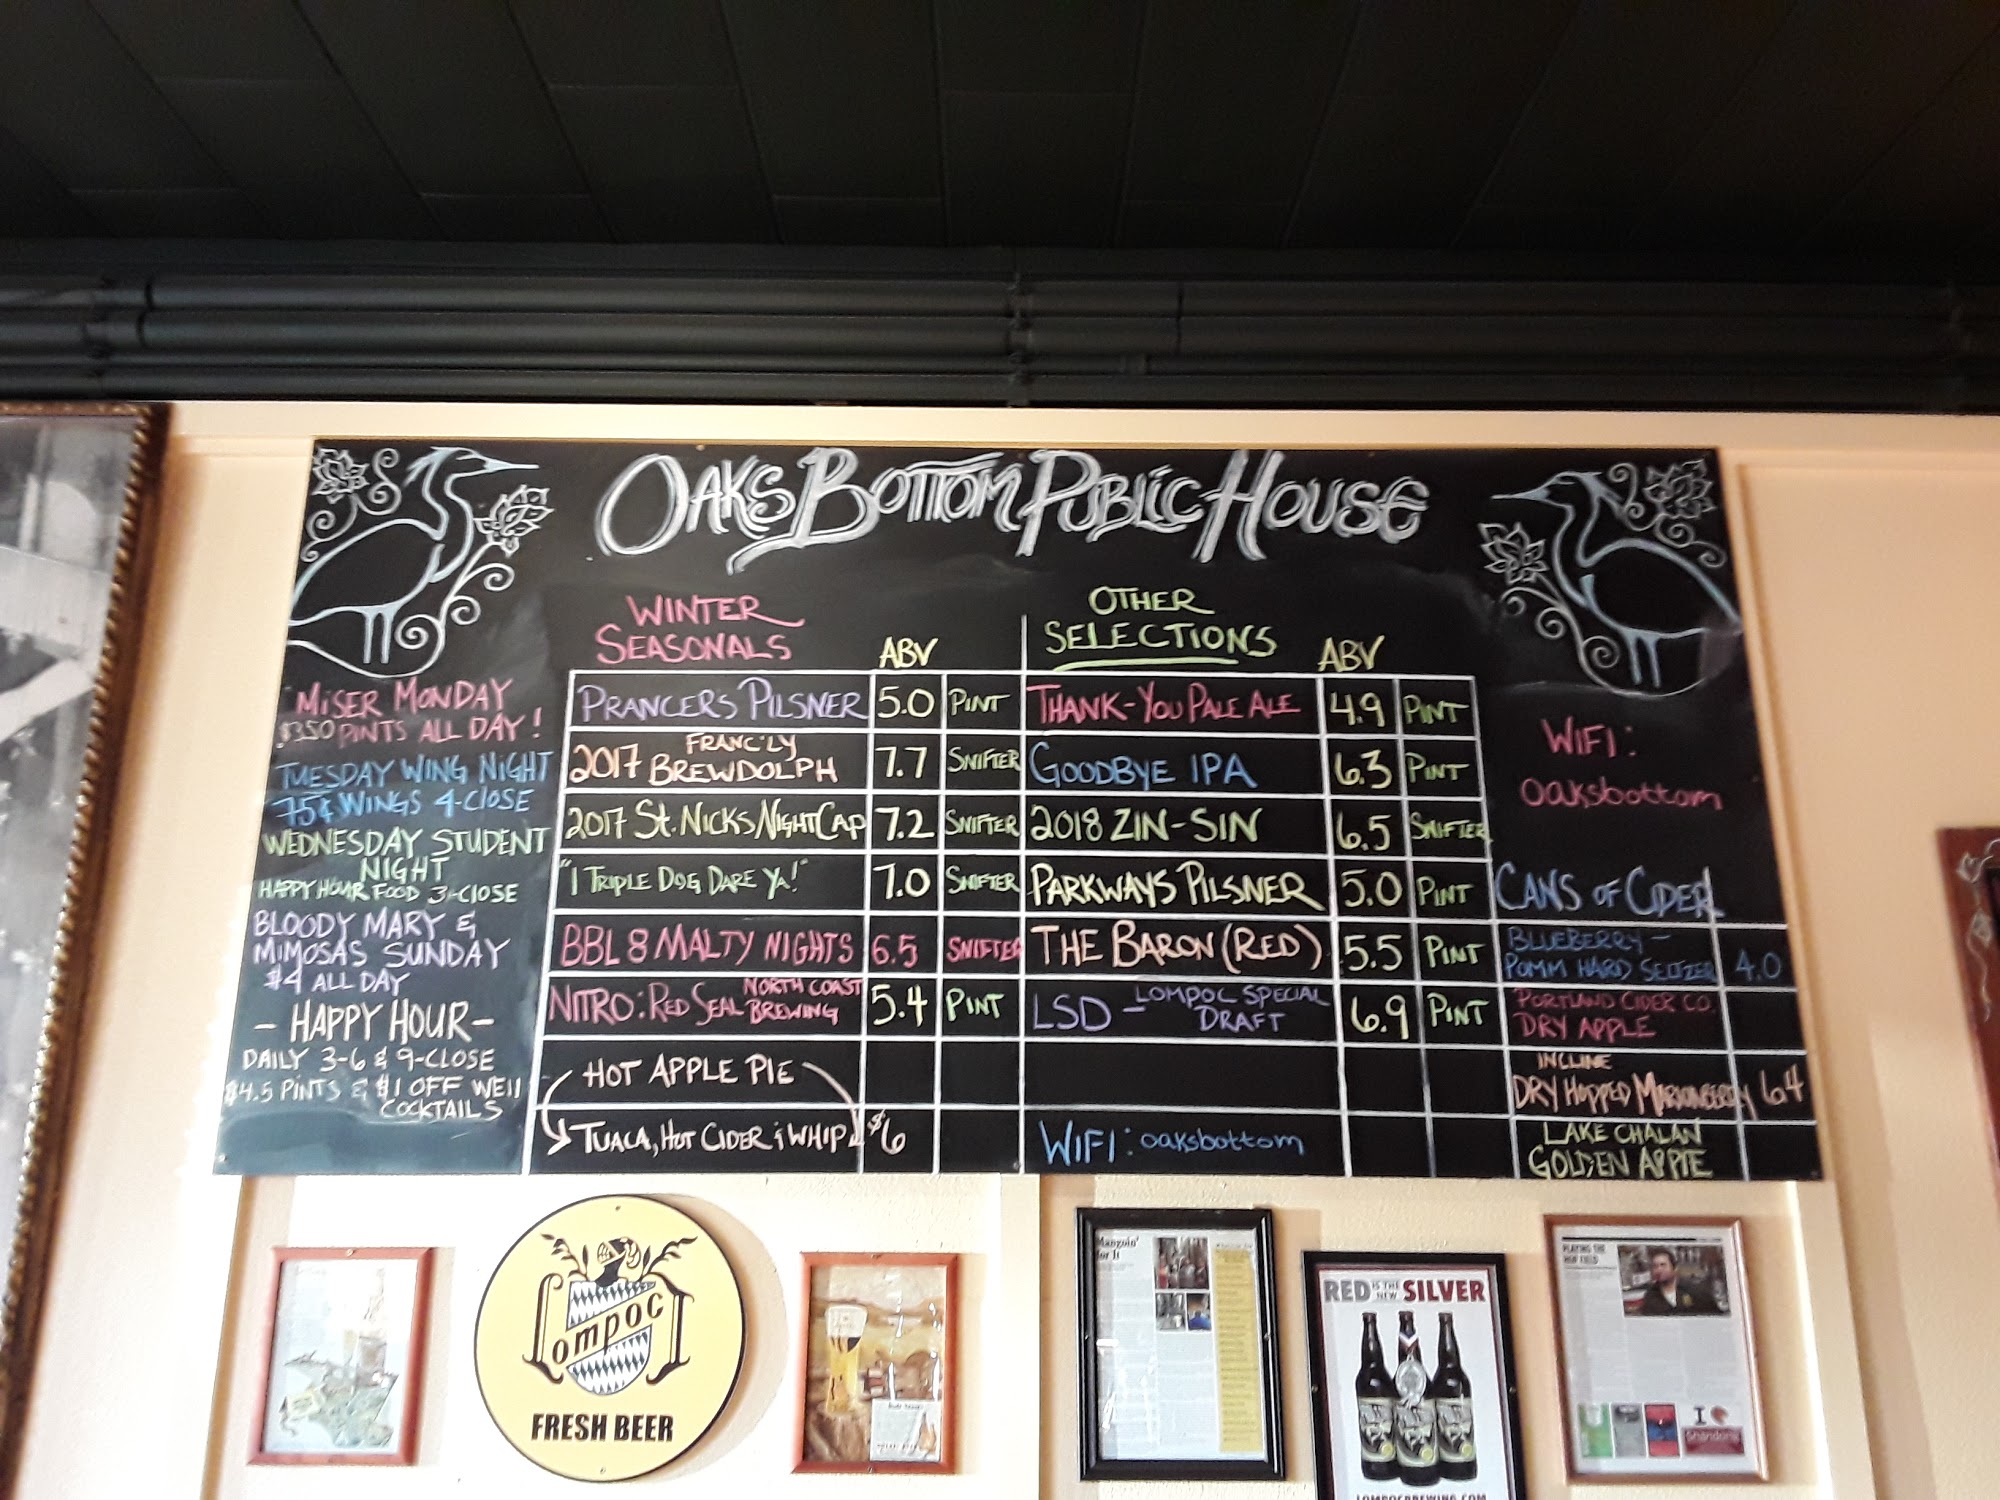 OAKS BOTTOM PUBLIC HOUSE
MISER MONDAY
$3.50 PINTS ALL DAY!
TUESDAY WING NIGHT
75¢ WINGS 4-CLOSE
WEDNESDAY STUDENT
NIGHT
HAPPY HOUR FOOD 3-CLOSE
BLOODY MARY &
MIMOSAS SUNDAY
$4 ALL DAY
- HAPPY HOUR -
DAILY 3-6 & 9-CLOSE
$4.5 PINTS & $1 OFF WELL
COCKTAILS
WINTER
SEASONALS ABV
PRANCER'S PILSNER 5.0 PINT
2017 FRANC'LY BREWDOLPH 7.7 SNIFTER
2017 ST. NICKS NIGHTCAP 7.2 SNIFTER
"I TRIPLE DOG DARE YA!" 7.0 SNIFTER
BBL 8 MALTY NIGHTS 6.5 SNIFTER
NITRO: RED SEAL NORTH COAST BREWING 5.4 PINT
HOT APPLE PIE
TUACA, HOT CIDER & WHIP $6
OTHER
SELECTIONS ABV
THANK-YOU PALE ALE 4.9 PINT
GOODBYE IPA 6.3 PINT
2018 ZIN-SIN 6.5 SNIFTER
PARKWAYS PILSNER 5.0 PINT
THE BARON (RED) 5.5 PINT
LSD - LOMPOC SPECIAL DRAFT 6.9 PINT
WIFI: oaksbottom
WIFI:
oaksbottom
CANS OF CIDER
BLUEBERRY-
POMM HARD SELTZER 4.0
PORTLAND CIDER CO.
DRY APPLE
INCLINE
DRY HOPPED MARIONBERRY 6.4
LAKE CHALAN
GOLDEN APPLE
Lompoc
FRESH BEER
Mangoin'
for It
RED IS THE NEW SILVER
LOMPOCBREWING.COM
PLAYING THE
HOP FIELD
I